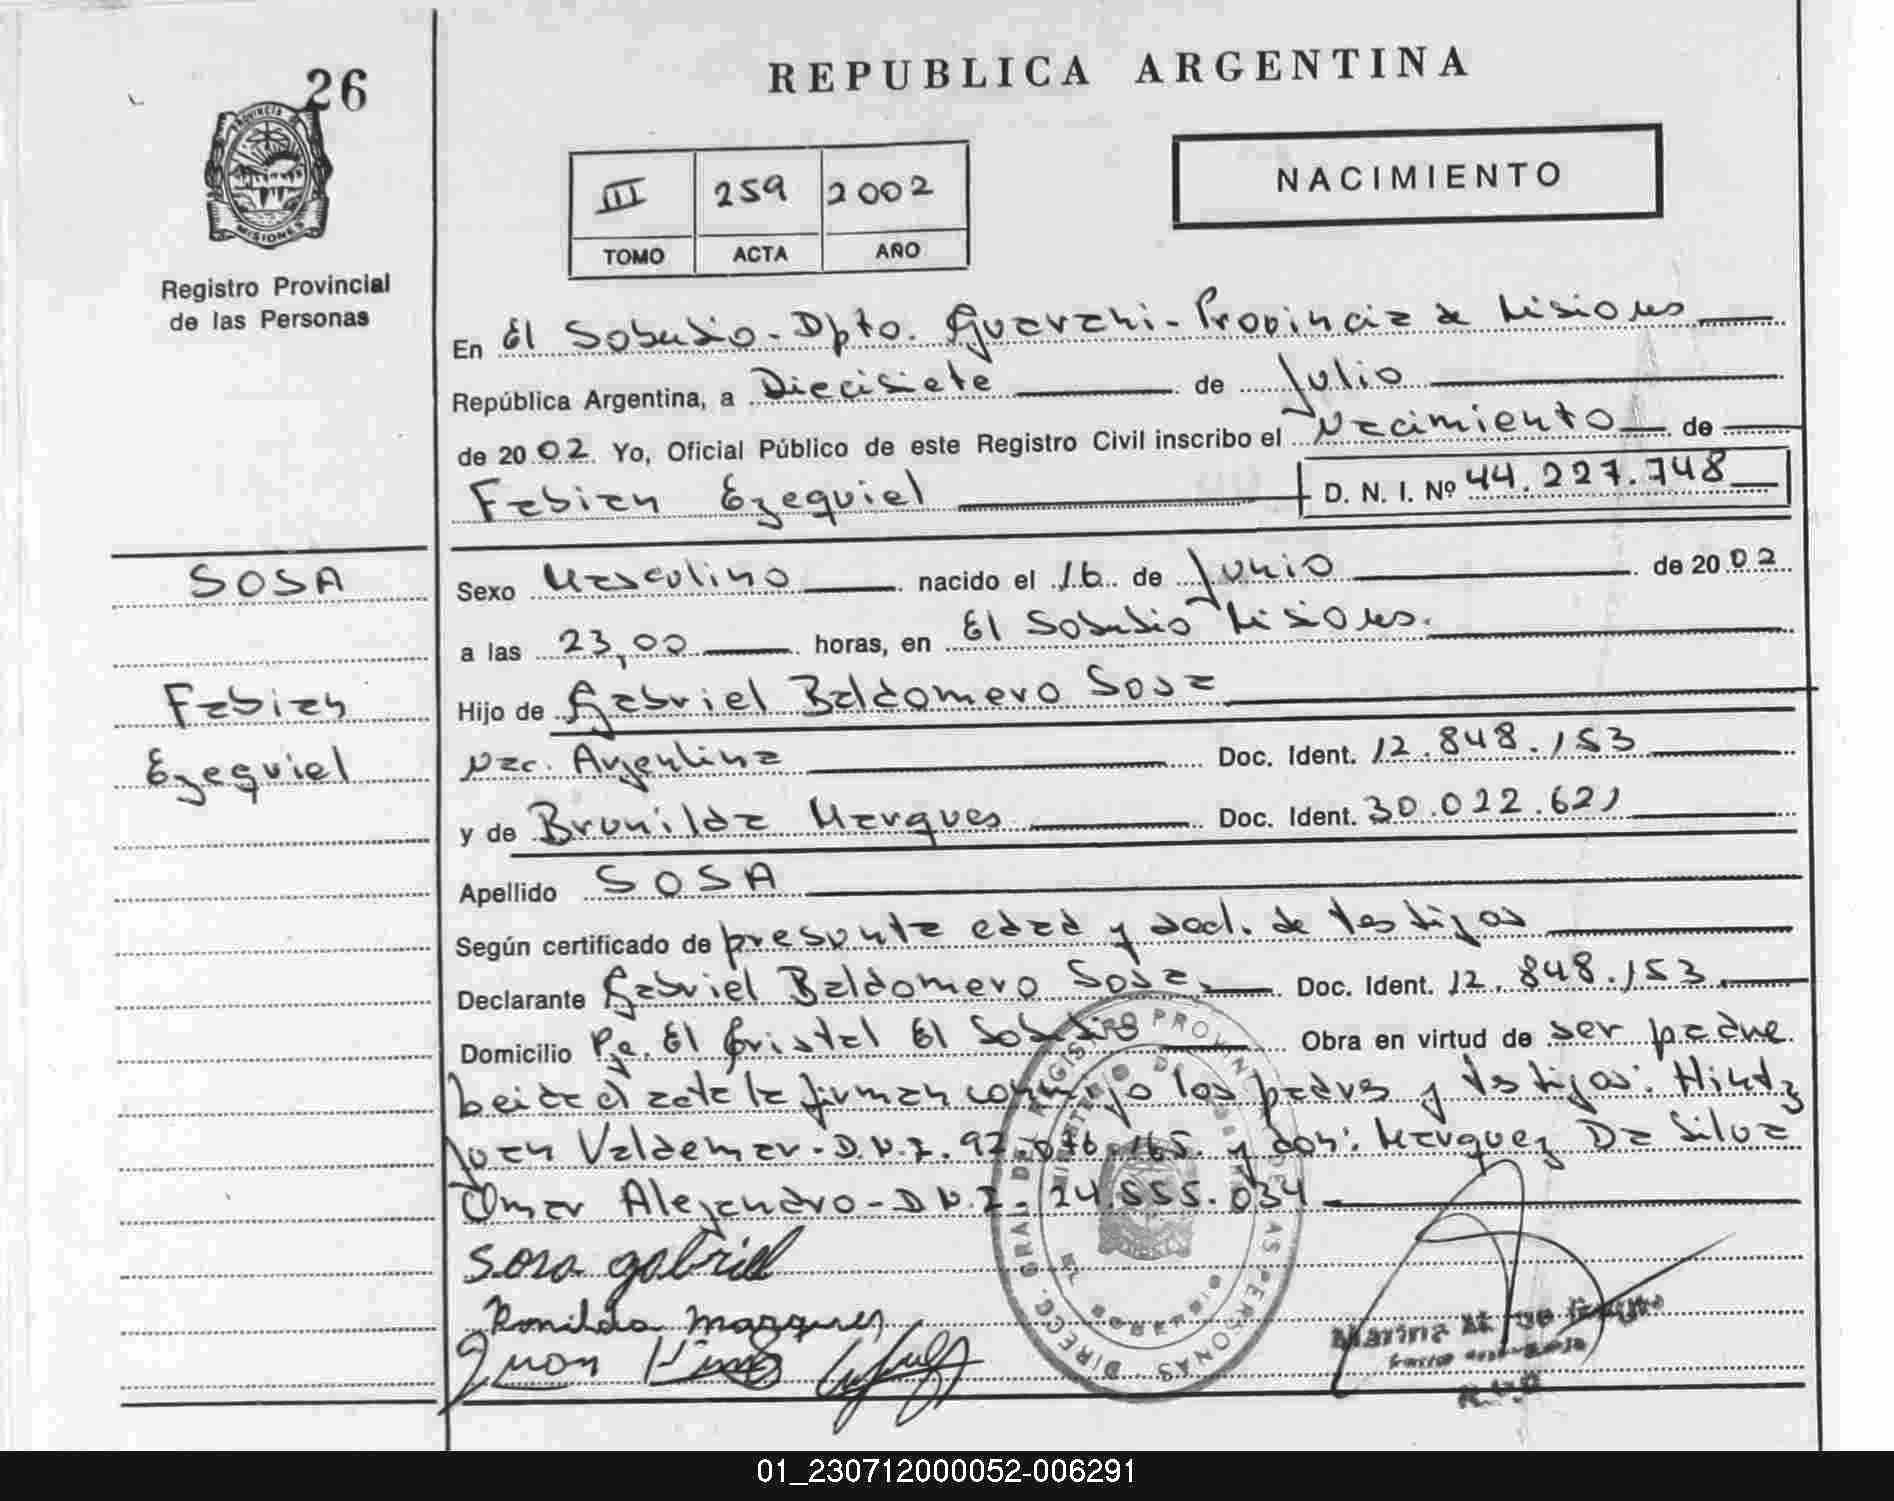 26
PROVINCIA DE
MISIONES
Registro Provincial
de las Personas
REPUBLICA ARGENTINA
III 259 2002
TOMO ACTA AÑO
NACIMIENTO
En El Soberbio - Dpto. Guarani - Provincia de Misiones
República Argentina, a Diecisiete de Julio
de 2002 Yo, Oficial Público de este Registro Civil inscribo el Nacimiento de
Fabian Ezequiel D. N. I. Nº 44.227.748
SOSA
Fabian
Ezequiel
Sexo Masculino nacido el 16 de Junio de 2002
a las 23,00 horas, en El Soberbio Misiones.
Hijo de Gabriel Baldomero Sosa
Nac. Argentina Doc. Ident. 12.848.153
y de Brunilda Marques Doc. Ident. 30.022.621
Apellido SOSA
Según certificado de presunta edad y decl. de testigos
Declarante Gabriel Baldomero Sosa Doc. Ident. 12.848.153
Domicilio Pje. El Cristal El Soberbio Obra en virtud de ser padre
Leida el acta la firman conmigo los padres y testigos: Hintz
Juan Valdemar - D.N.I. 92.076.165. y don: Marquez Da Silva
Omar Alejandro - D.N.I - 24.555.034
Sosa gabriel
Ronilda marques
Juan Hintz
DIRECC. GRAL. DEL REGISTRO PROVINCIAL DE LAS PERSONAS
MINISTERIO DE GOBIERNO
Marina
01_230712000052-006291